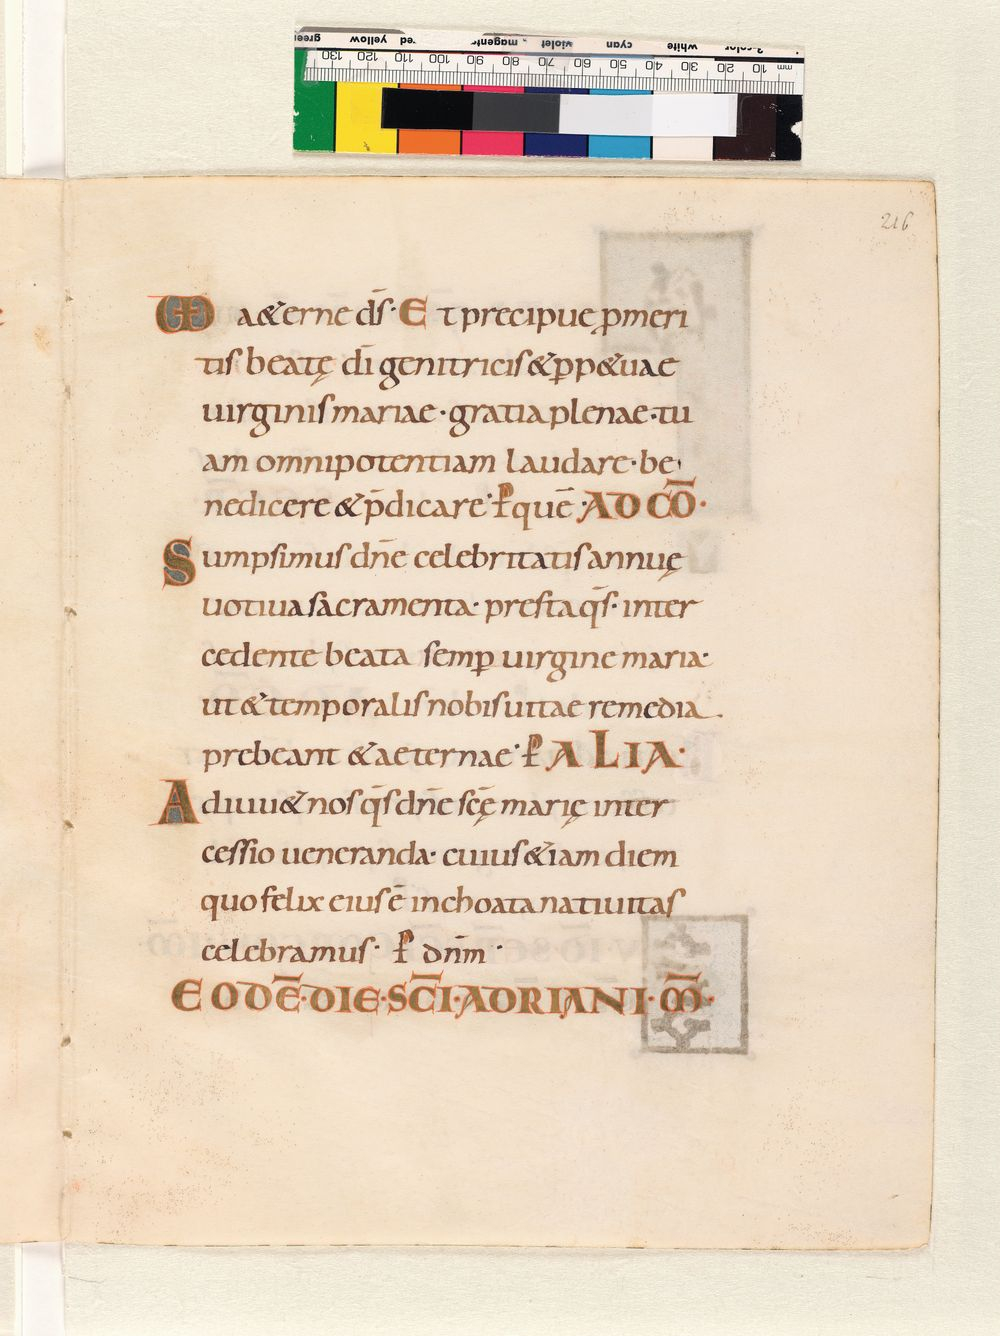 216
V̄D a&erne d̄s· Et precipue ꝓ meri
tis beatę dī genitricis & ꝑp&uae
uirginis mariae · gratia plenae · tu
am omnipotentiam laudare · be
nedicere & p̄dicare · P̄ quē · AD CŌ·
Sumpsimus dn̄e celebritatis annuę
uotiua sacramenta · presta q̄s · inter
cedente beata semꝑ uirgine maria·
ut & temporalis nobis uitae remedia.
prebeant & aeternae · P̄ ALIA·
Adiuu& nos q̄s dn̄e scē marię inter
cessio ueneranda · cuius & iam diem
quo felix eius ē inchoata natiuitas
celebramus · P̄ dnm̄ ·
EODĒ·DIE·SC̄I·ADRIANI·M̄·